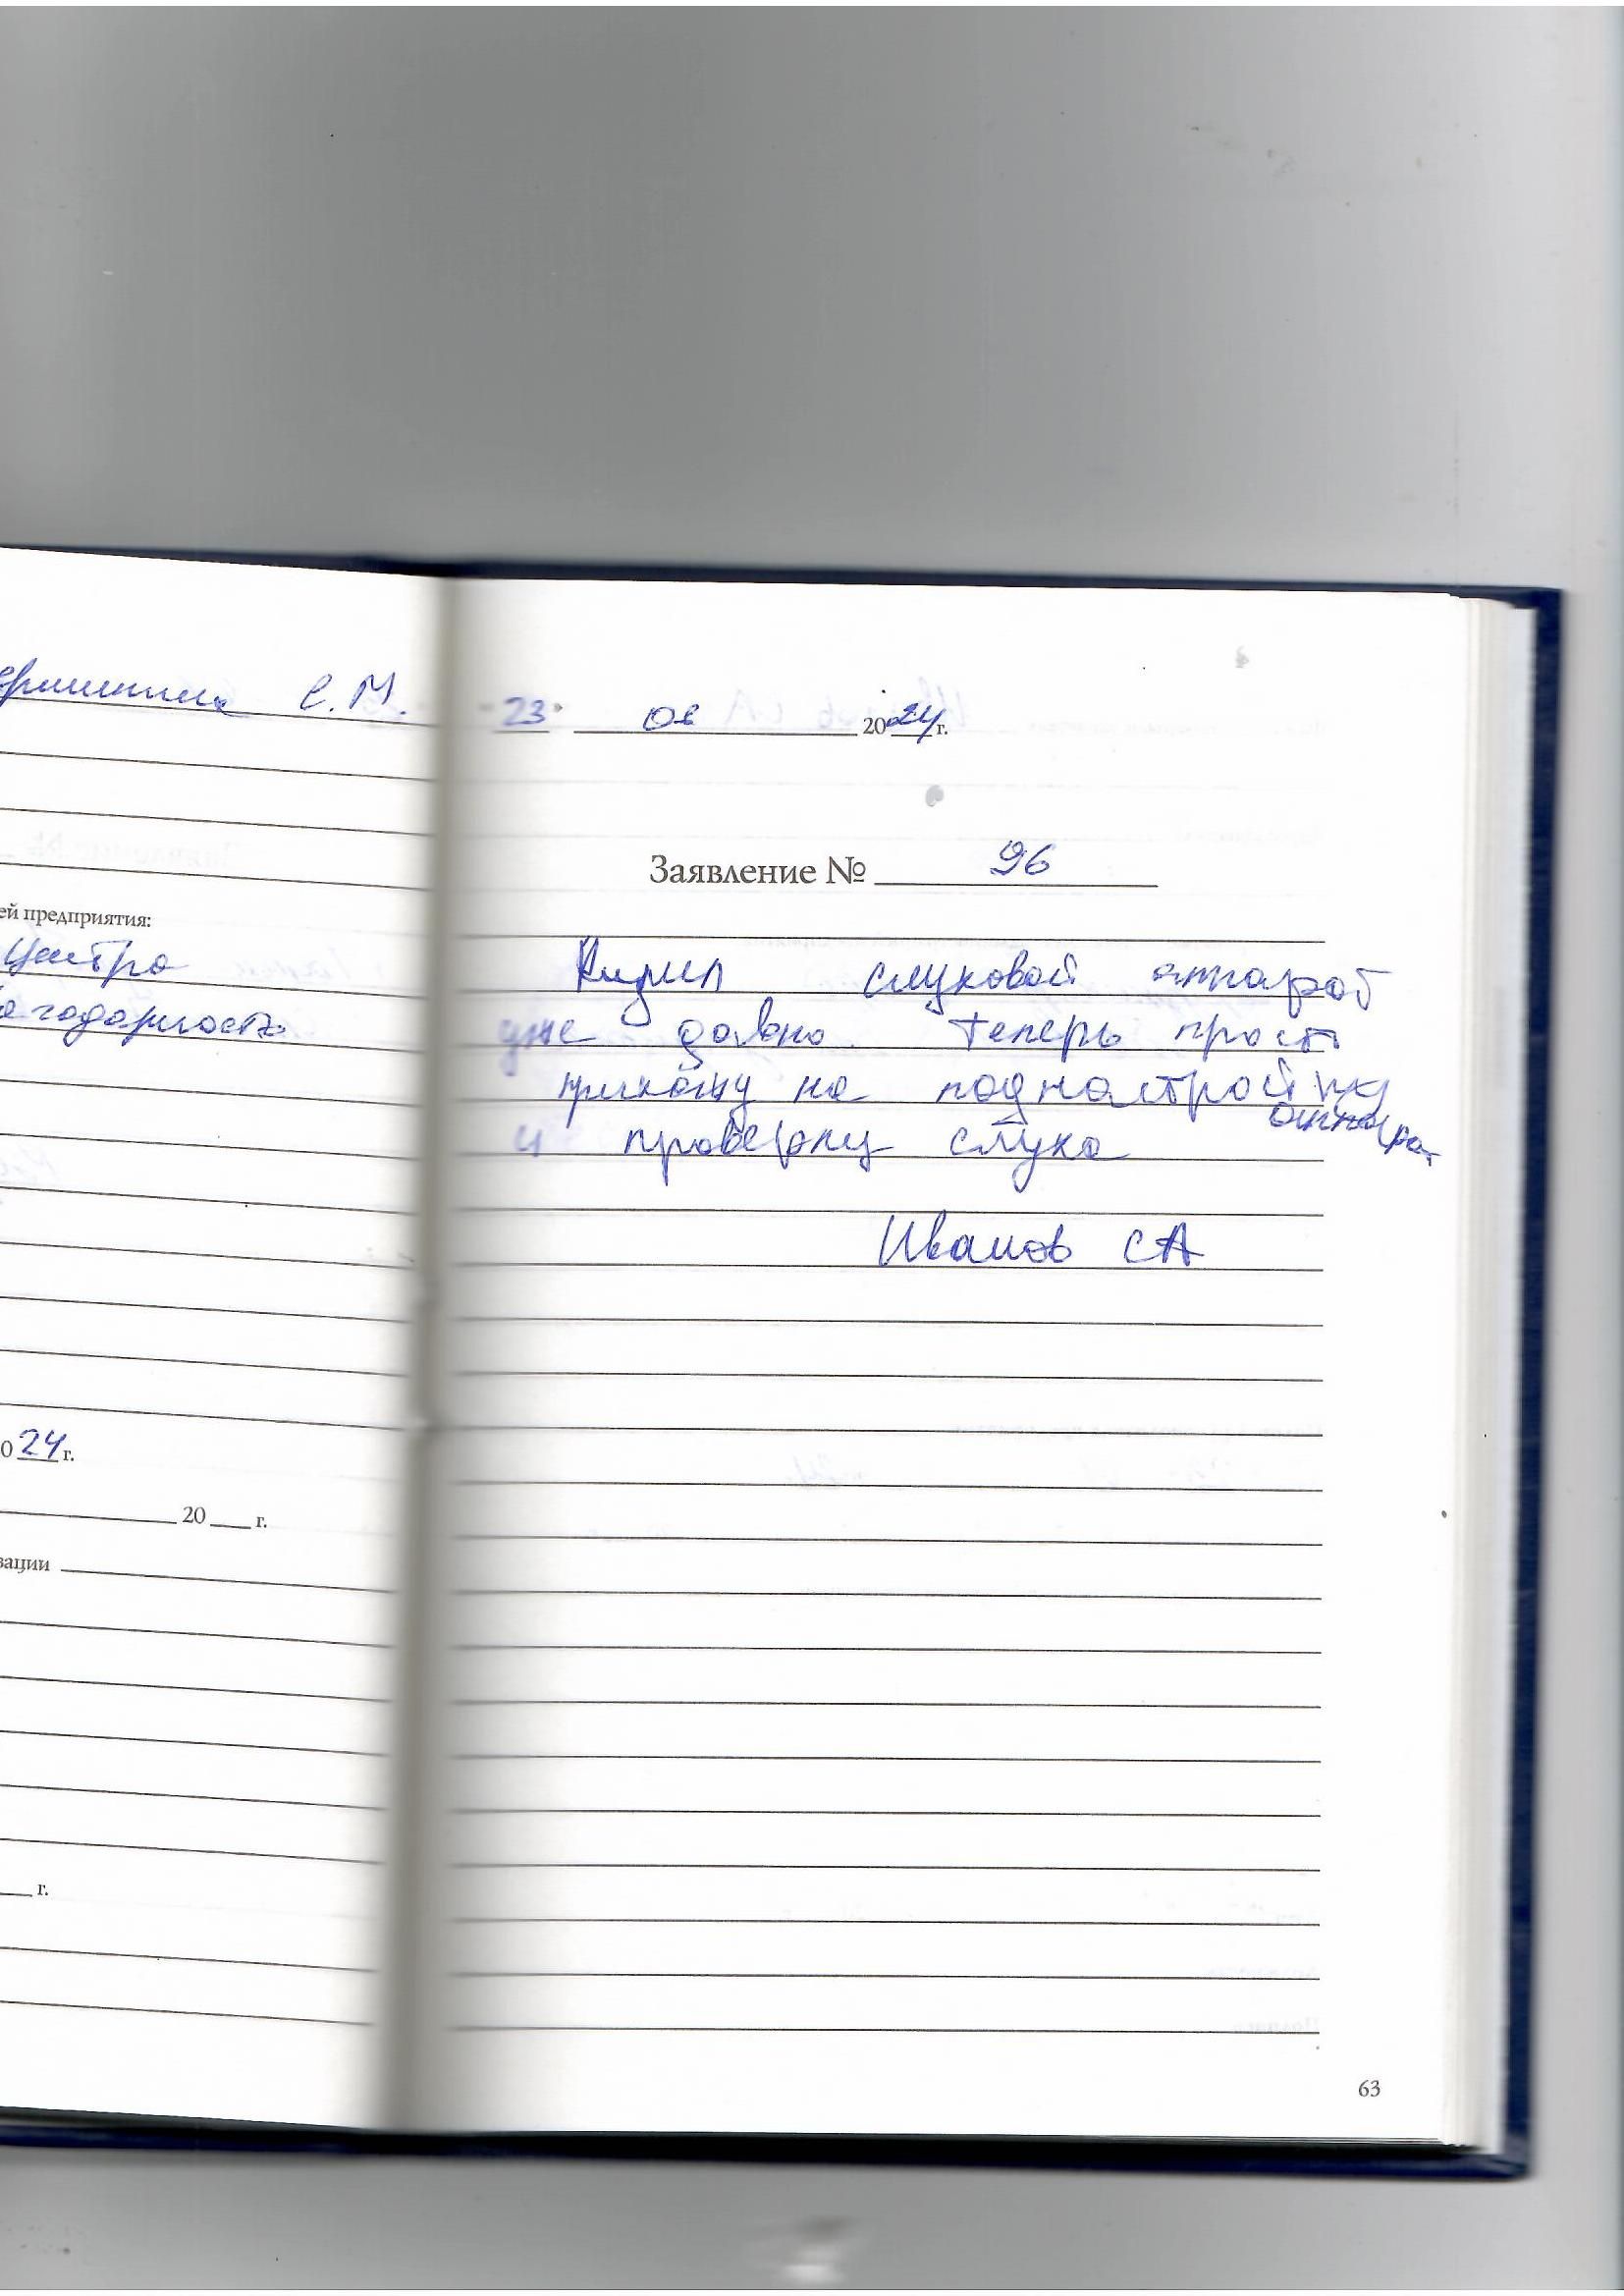 С.М.
ей предприятия:
центра
20 24 г.
20 г.
зации
г.
23 08 2024 г.
Заявление № 96
Купил слуховой аппарат
уже давно. Теперь просто
прихожу на поднастройку
аппарат
и проверку слуха
Иванов СА
63